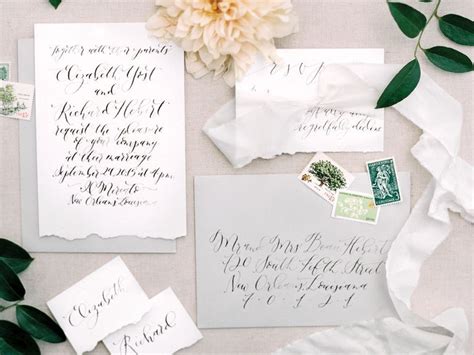 together with their parents
Elizabeth Yort
and
Richard Hebert
request the pleasure
of your company
at their marriage
September 29, 2015 at
Marcato
New Orleans, Louisiana
rsvp
regretfully decline
Mr and Mrs Beau Hebert
South Fifth Street
New Orleans, Louisiana
Elizabeth
Richard